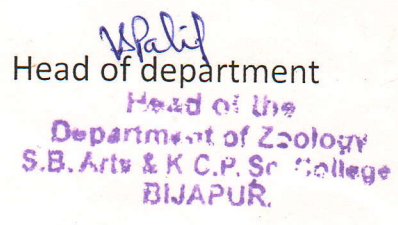 VSPatil
Head of department
Head of the
Department of Zoology
S.B. Arts & K C.P. Sc College
BIJAPUR.